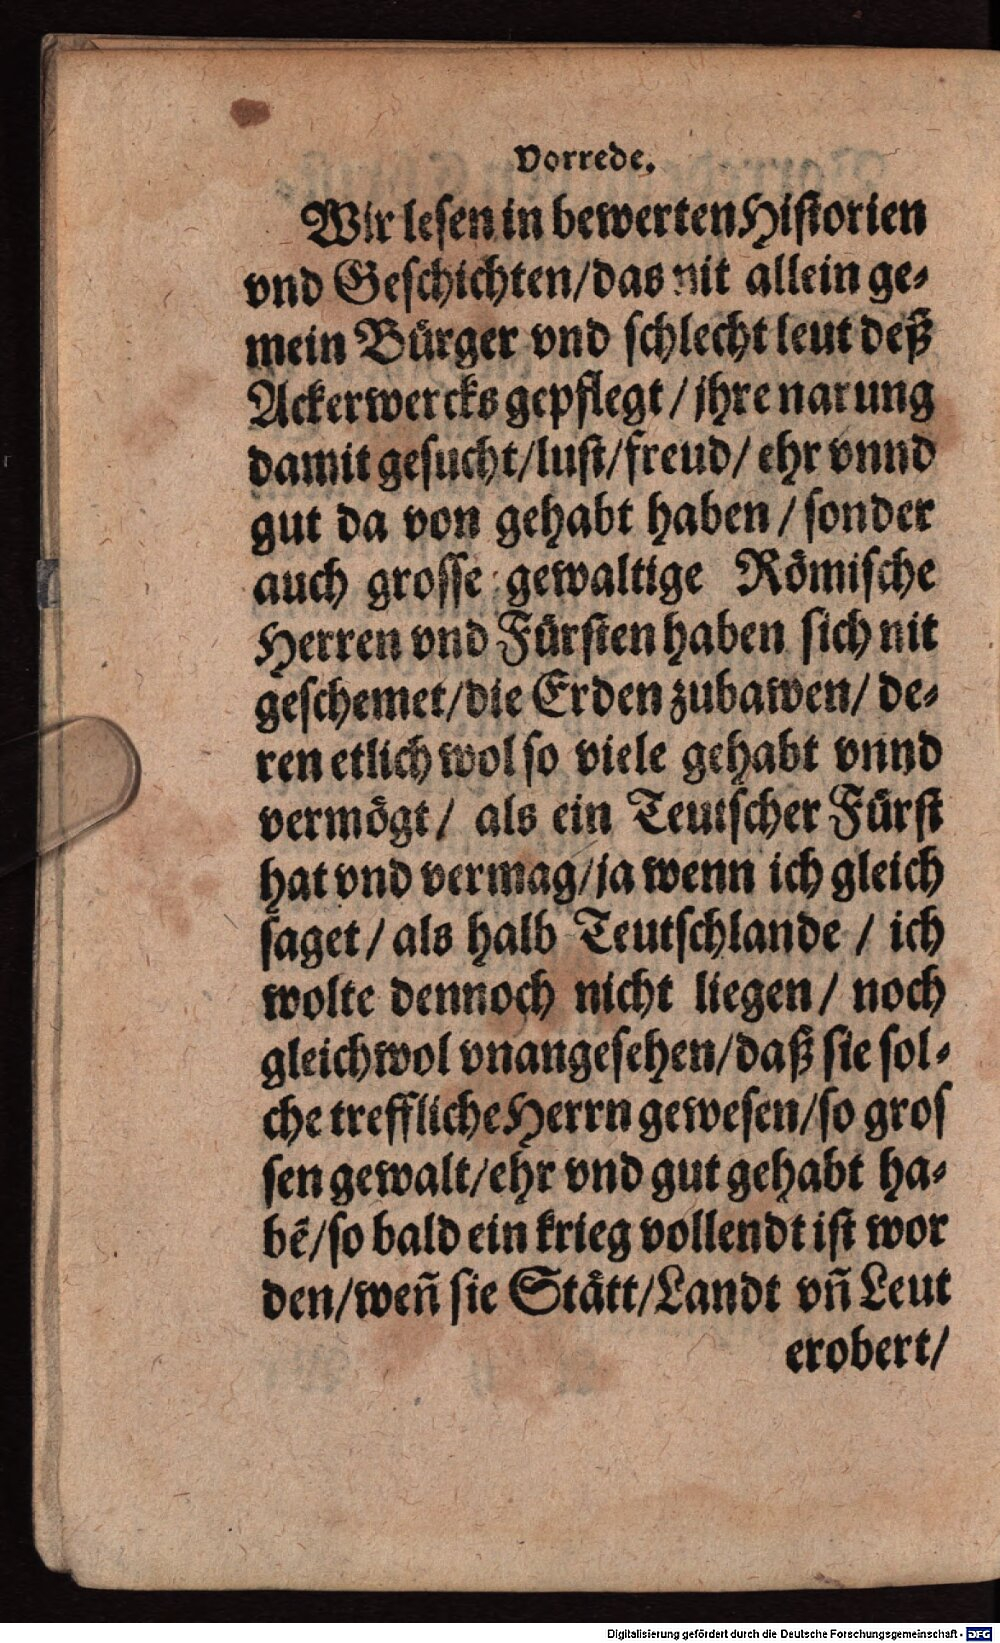 Vorrede.
Wir lesen in bewerten Historien
vnd Geschichten/das nit allein ge-
mein Bürger vnd schlecht leut deß
Ackerwercks gepflegt / jhre narung
damit gesucht/lust/freud/ ehr vnnd
gut da von gehabt haben / sonder
auch grosse gewaltige Römische
Herren vnd Fürsten haben sich nit
geschemet/die Erden zubawen/ de-
ren etlich wol so viele gehabt vnnd
vermögt/ als ein Teutscher Fürst
hat vnd vermag/ja wenn ich gleich
saget / als halb Teutschlande / ich
wolte dennoch nicht liegen/ noch
gleichwol vnangesehen/daß sie sol-
che treffliche Herrn gewesen/so gros
sen gewalt/ehr vnd gut gehabt ha-
bẽ/so bald ein krieg vollendt ist wor
den/weñ sie Stätt/Landt vñ Leut
erobert/
Digitalisierung gefördert durch die Deutsche Forschungsgemeinschaft - DFG